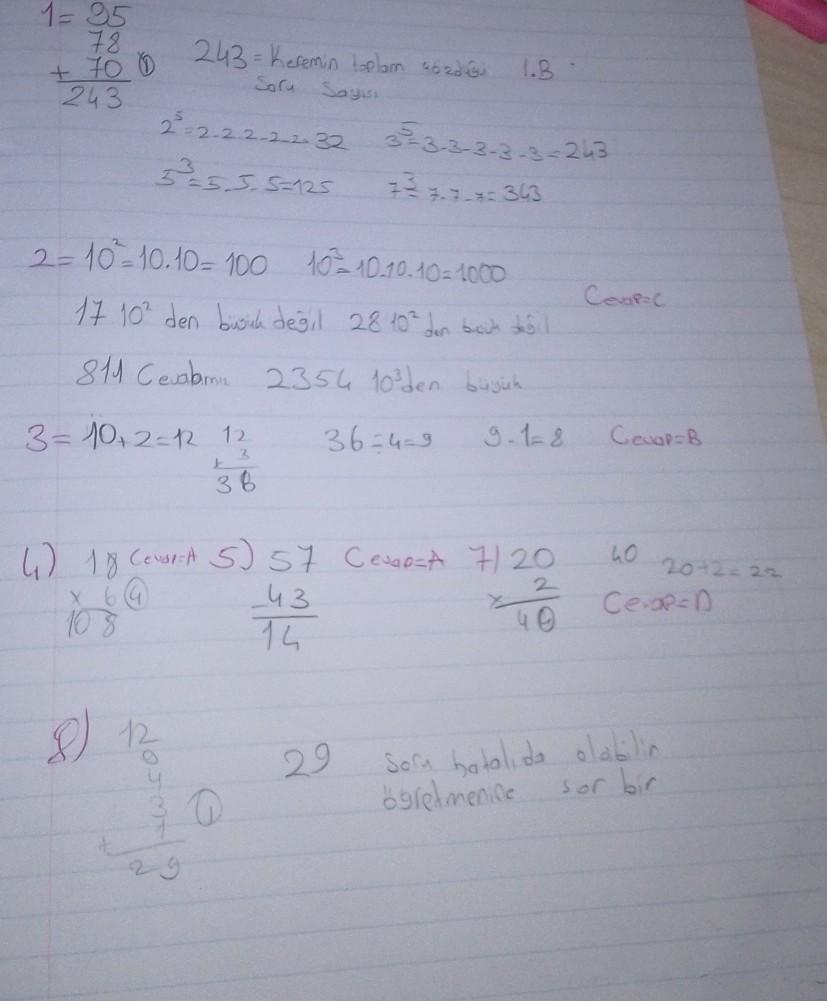 1= 95
78
+ 70 ①
243
243 = Keremin toplam çözdüğü 1.B
Soru Sayısı
2⁵=2.2.2.2.2=32 3⁵=3.3.3.3.3=243
5³=5.5.5=125 7³=7.7.7=343
2= 10²=10.10= 100 10³=10.10.10=1000
Cevap=C
17 10² den büyük değil 28 10² den büyük değil
811 Cevabımız 2354 10³den büyük
3= 10+2=12 12 36÷4=9 9-1=8 Cevap=B
x 3
36
4) 18 Cevap=A 5) 57 Cevap=A 7) 20 40 20+2=22
x 6 ④ -43 x 2 Cevap=D
108 14 40
8) 12
4
3 ①
+
29
29 Soru hatalıda olabilir
öğretmenine sor bir